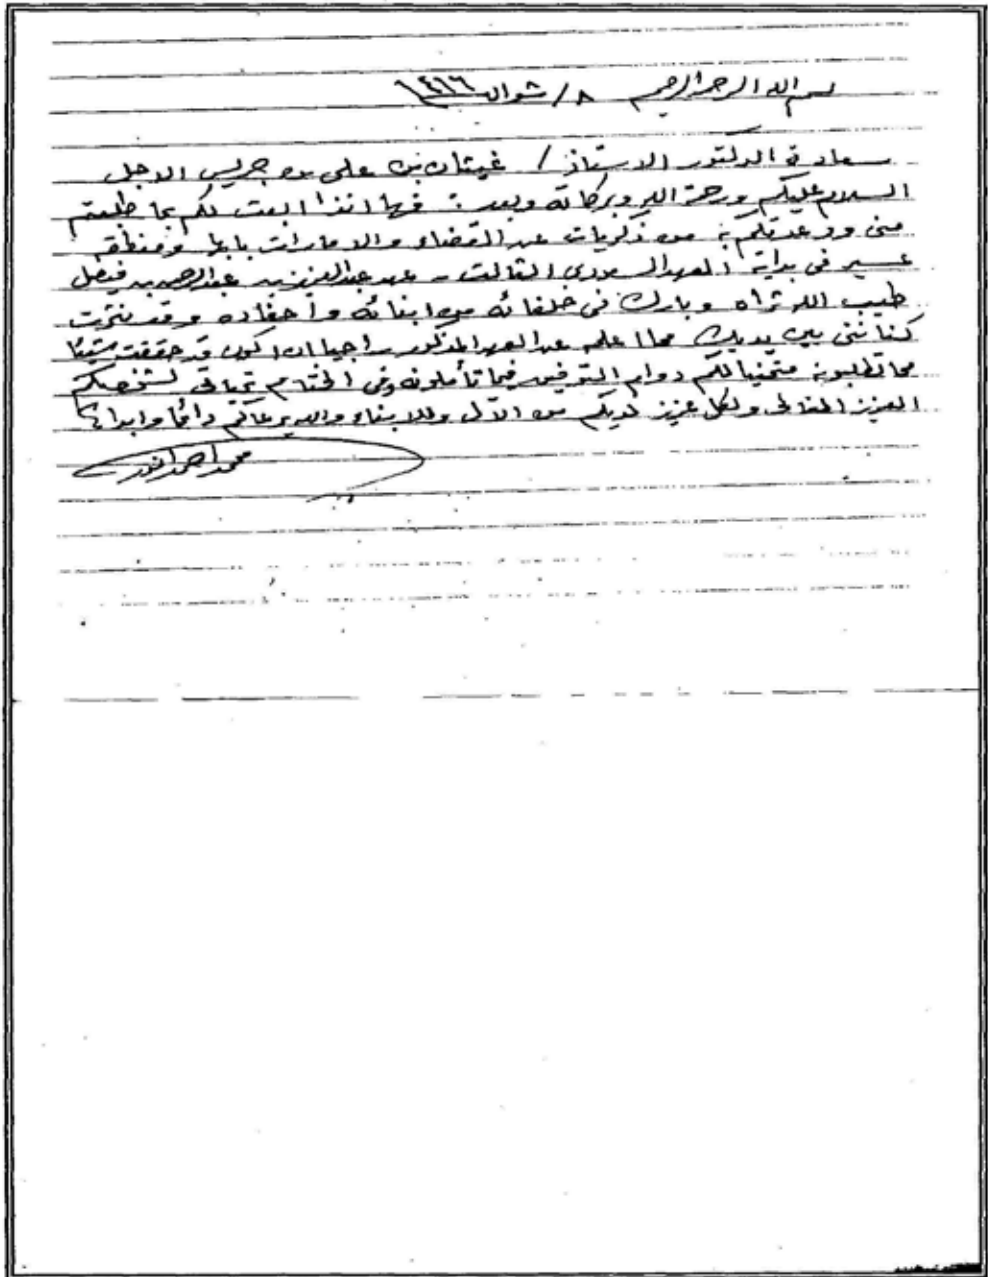 بسم الله الرحمن الرحيم ٨/ شوال ١٤١٦
سعادة الدكتور الاستاذ / غيثان بن علي بن جريس الاجل
السلام عليكم ورحمة الله وبركاته وبعد : فها انذا ابعث لكم بما طلبتم
مني ووعدتكم به من ذكريات عن القضاء والامارات بابها ومنطقة
عسير في بداية العهد السعودي الثالث - عهد عبدالعزيز بن عبدالرحمن بن فيصل
طيب الله ثراه وبارك في خلفائه من ابنائه واحفاده وقد نثرت
كنانتي بين يديك مما اعلم عن العهد المذكور راجيا ان اكون قد حققت شيئا
مما تطلبونه متمنيا لكم دوام التوفيق فيما تأملونه وفي الختام تحياتي لشخصكم
العزيز الغالي ولكل عزيز لديكم من الآل والابناء والله يرعاكم دائما وابدا
محمد احمد انور